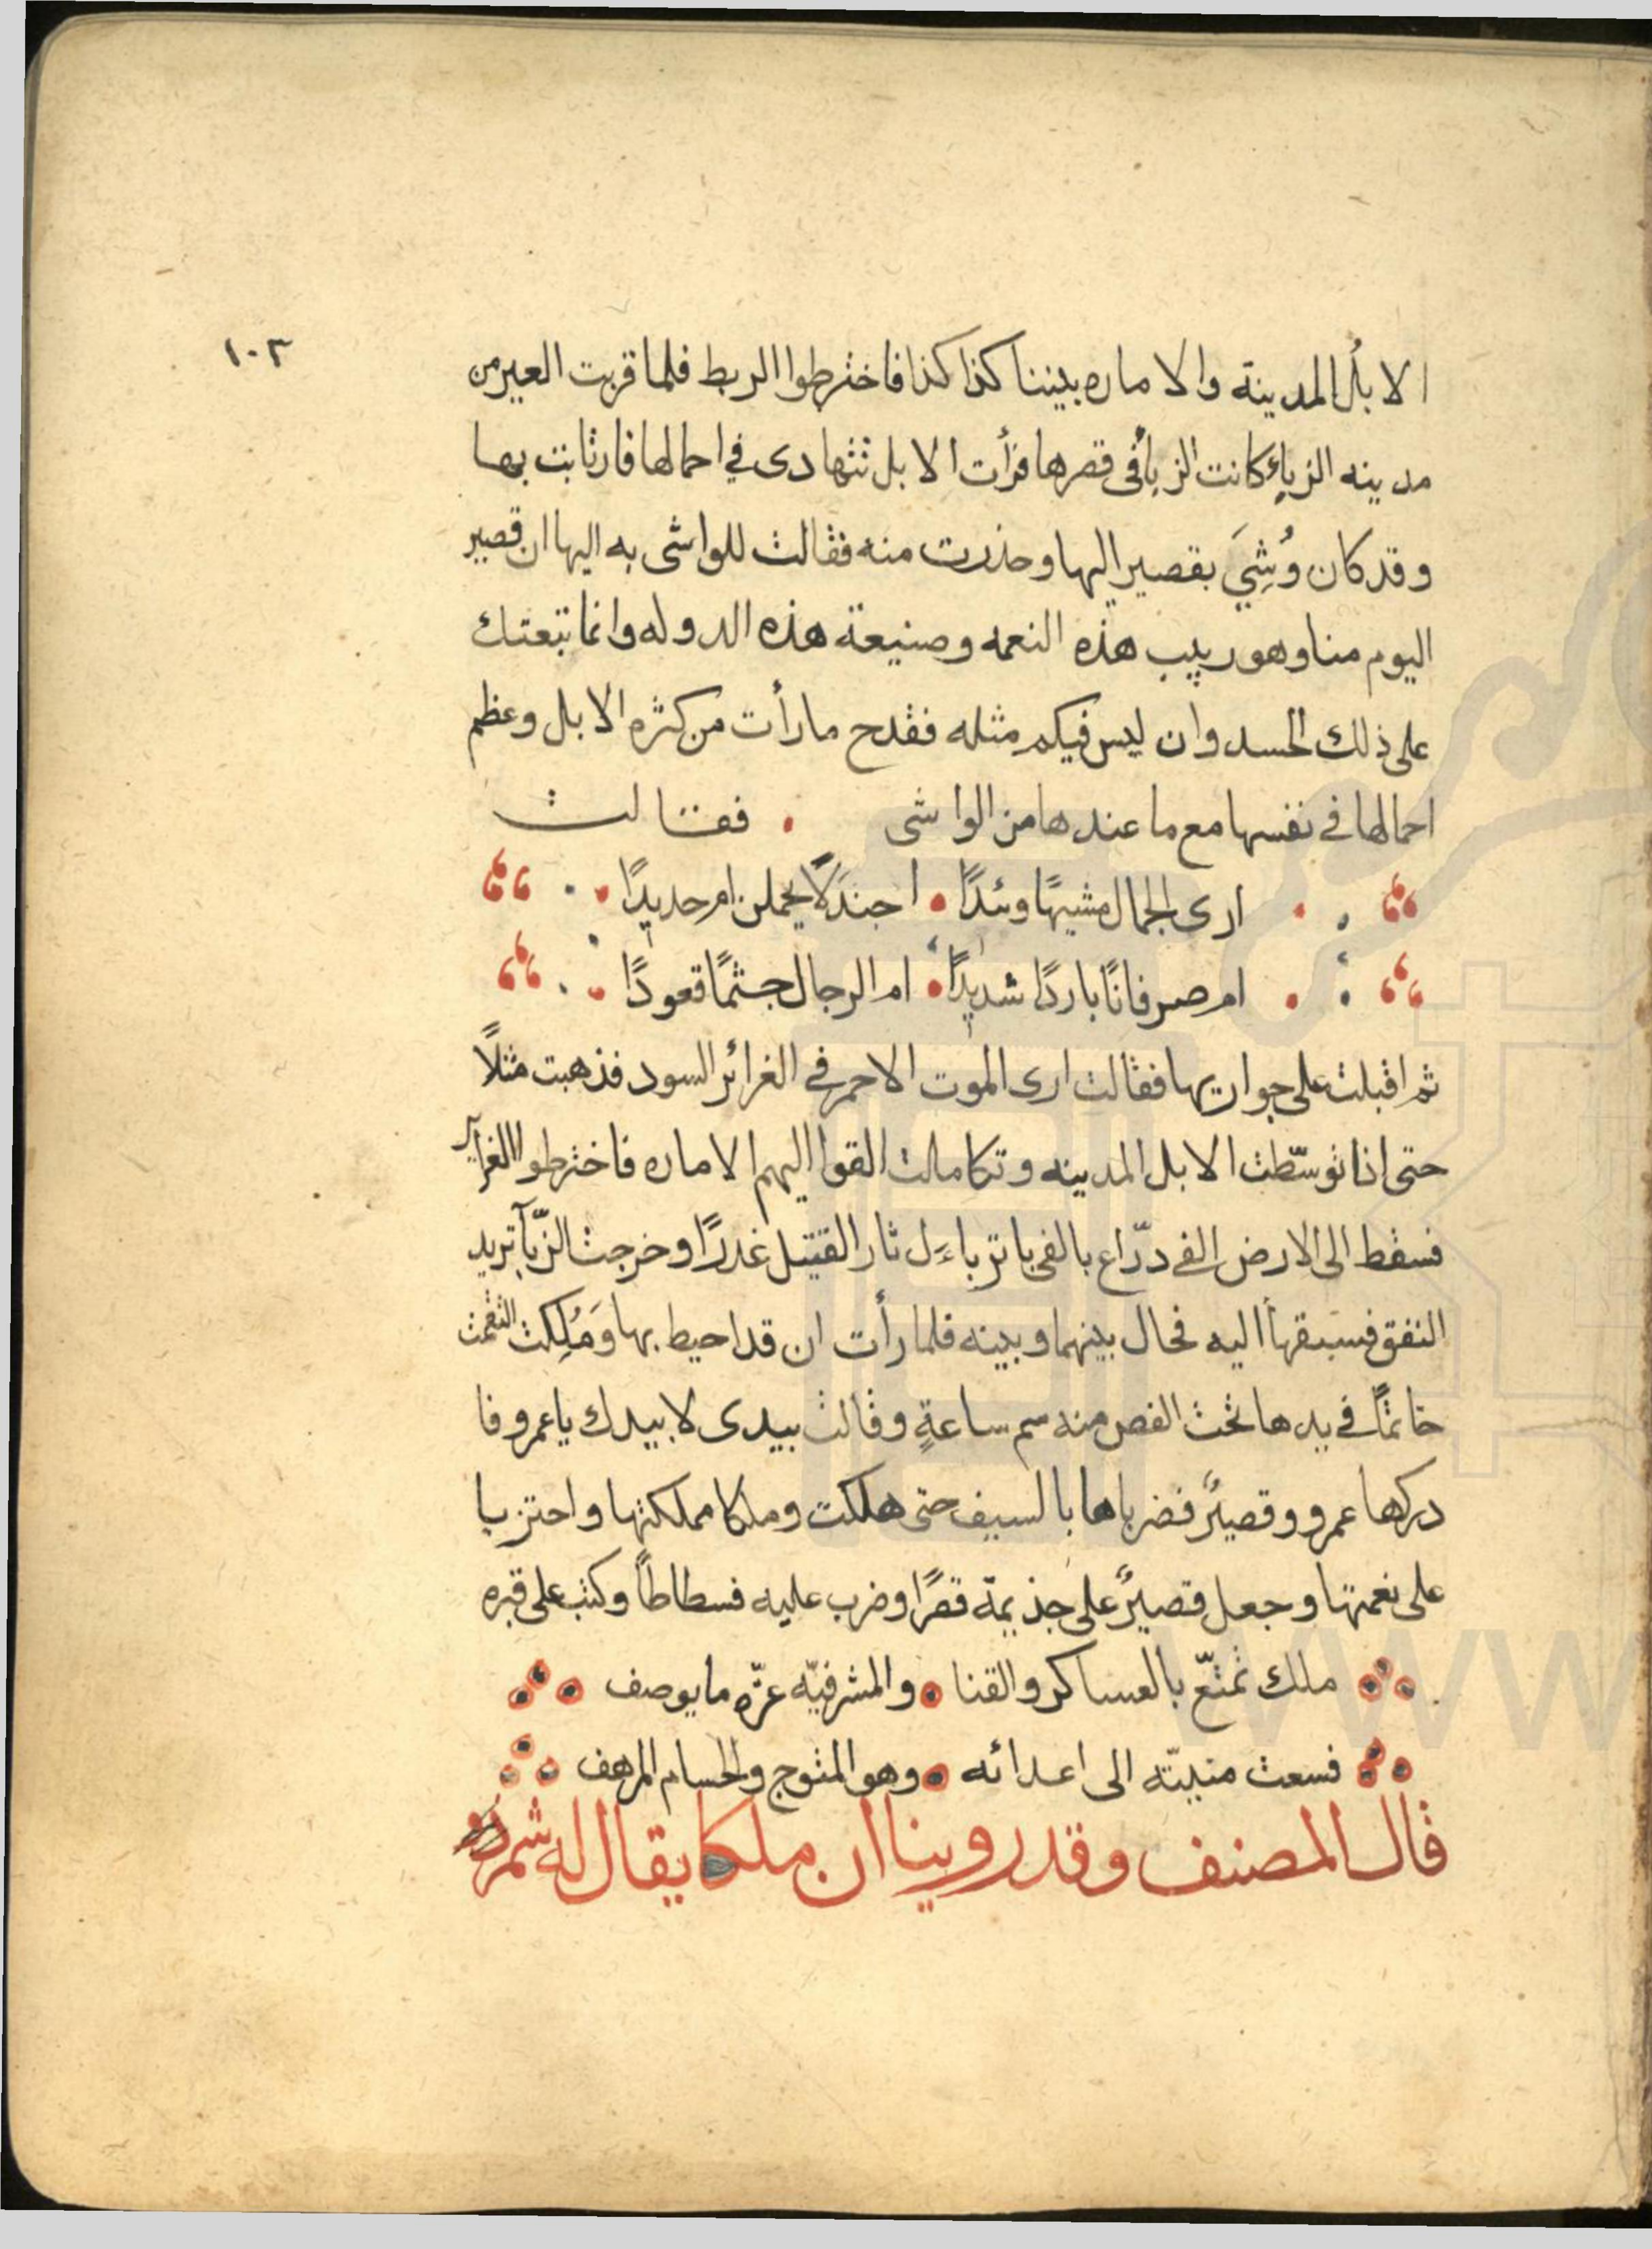 ١٠٣
الابلُ المدينة والاماره بيننا كذا كذا فاخترطوا الربط فلما قربت العير من
مدينه الزباءِ كانت الزبأ فى قصرها فرأت الابل تتهادى في احمالها فارتابت بها
وقد كان وُشِيَ بقصير اليها وحذرت منه فقالت للواشى به اليها ان قصير
اليوم منا وهو ربيب هذه النعمه وصنيعة هذه الدوله وانما تبعتك
على ذلك الحسد وان ليس فيكم مثله فقدح ما رأت من كثره الابل وعظم
احمالها في نفسها مع ما عندها من الواشى فقالت
ارى الجمال مشيهًا وئدًا اجندلًا يحملن ام حديدًا
ام صرفانًا باردًا شديدًا ام الرجال جثمًا قعودًا
ثم اقبلت على جواريها فقالت ارى الموت الاحمر في الغرائر السود فذهبت مثلًا
حتى اذا توسّطت الابل المدينه وتكاملت القوا اليهم الاماره فاخترطوا الغراير
فسقط الى الارض الفى درّاع بالفى باتر ياءَل ثار القتيل غدرًا وخرجت الزّبآ تريد
النفق فسبقها اليه فحال بينهما وبينه فلما رأت ان قد احيط بها وَمُلِكت التقمت
خاتمًا في يدها تحت الفص منه سم ساعةٍ وقالت بيدى لا بيدك يا عمرو فا
دركها عمرو وقصيرٌ فضرباها بالسيف حتى هلكت وملكا مملكتها واحتزبا
على نعمتها وجعل قصيرٌ على جذيمة قصرًا وضرب عليه فسطاطاً وكتب على قبره
ملك تمتّع بالعساكر والقنا والمشرفيّه عزّه ما يوصف
فسعت منيّته الى اعدائه وهو المتوج والحسام المرهف
قال المصنف وقد روينا ان ملكا يقال له شمر